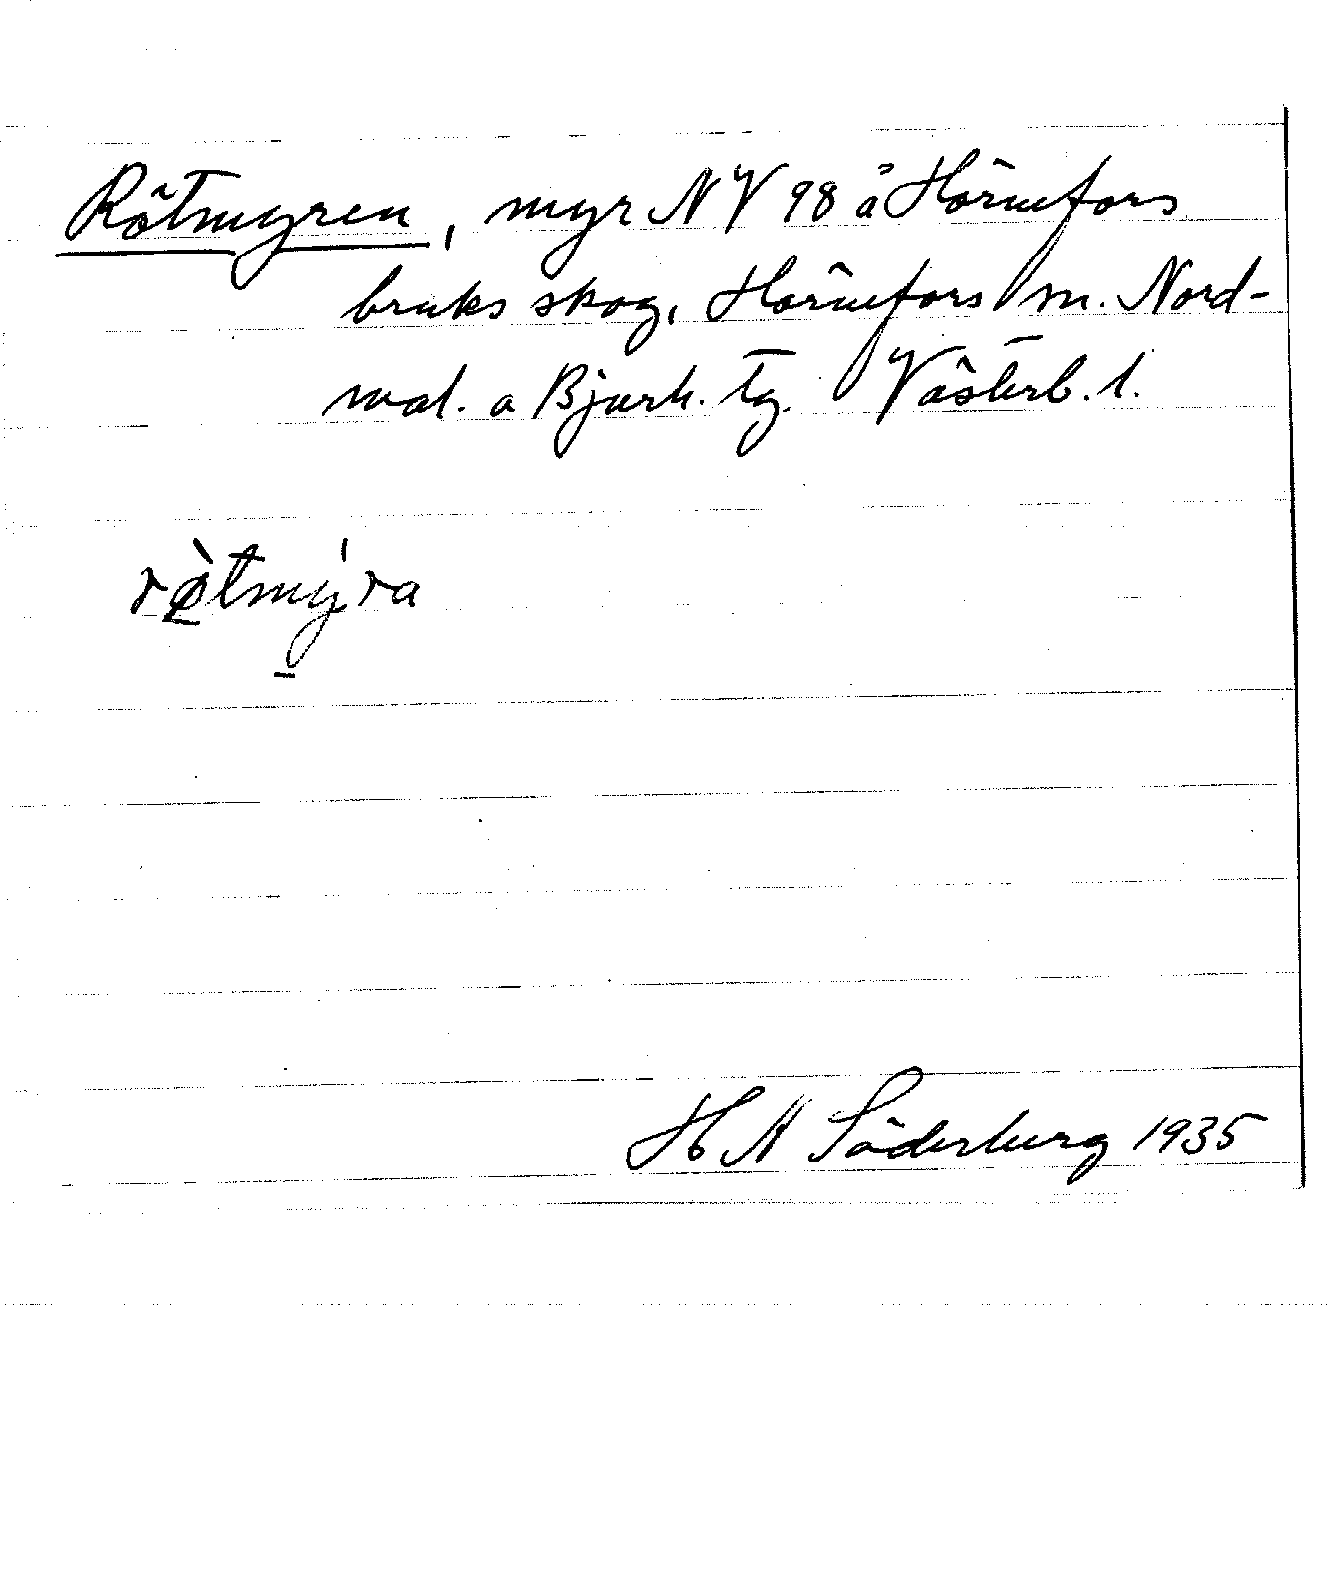 Rötmyren, myr NV 98 å Hörnefors
bruks skog, Hörnefors sn. Nord-
mal. o Bjurh. tg. Västerb. l.
rø̀tmýra
H A Söderberg 1935